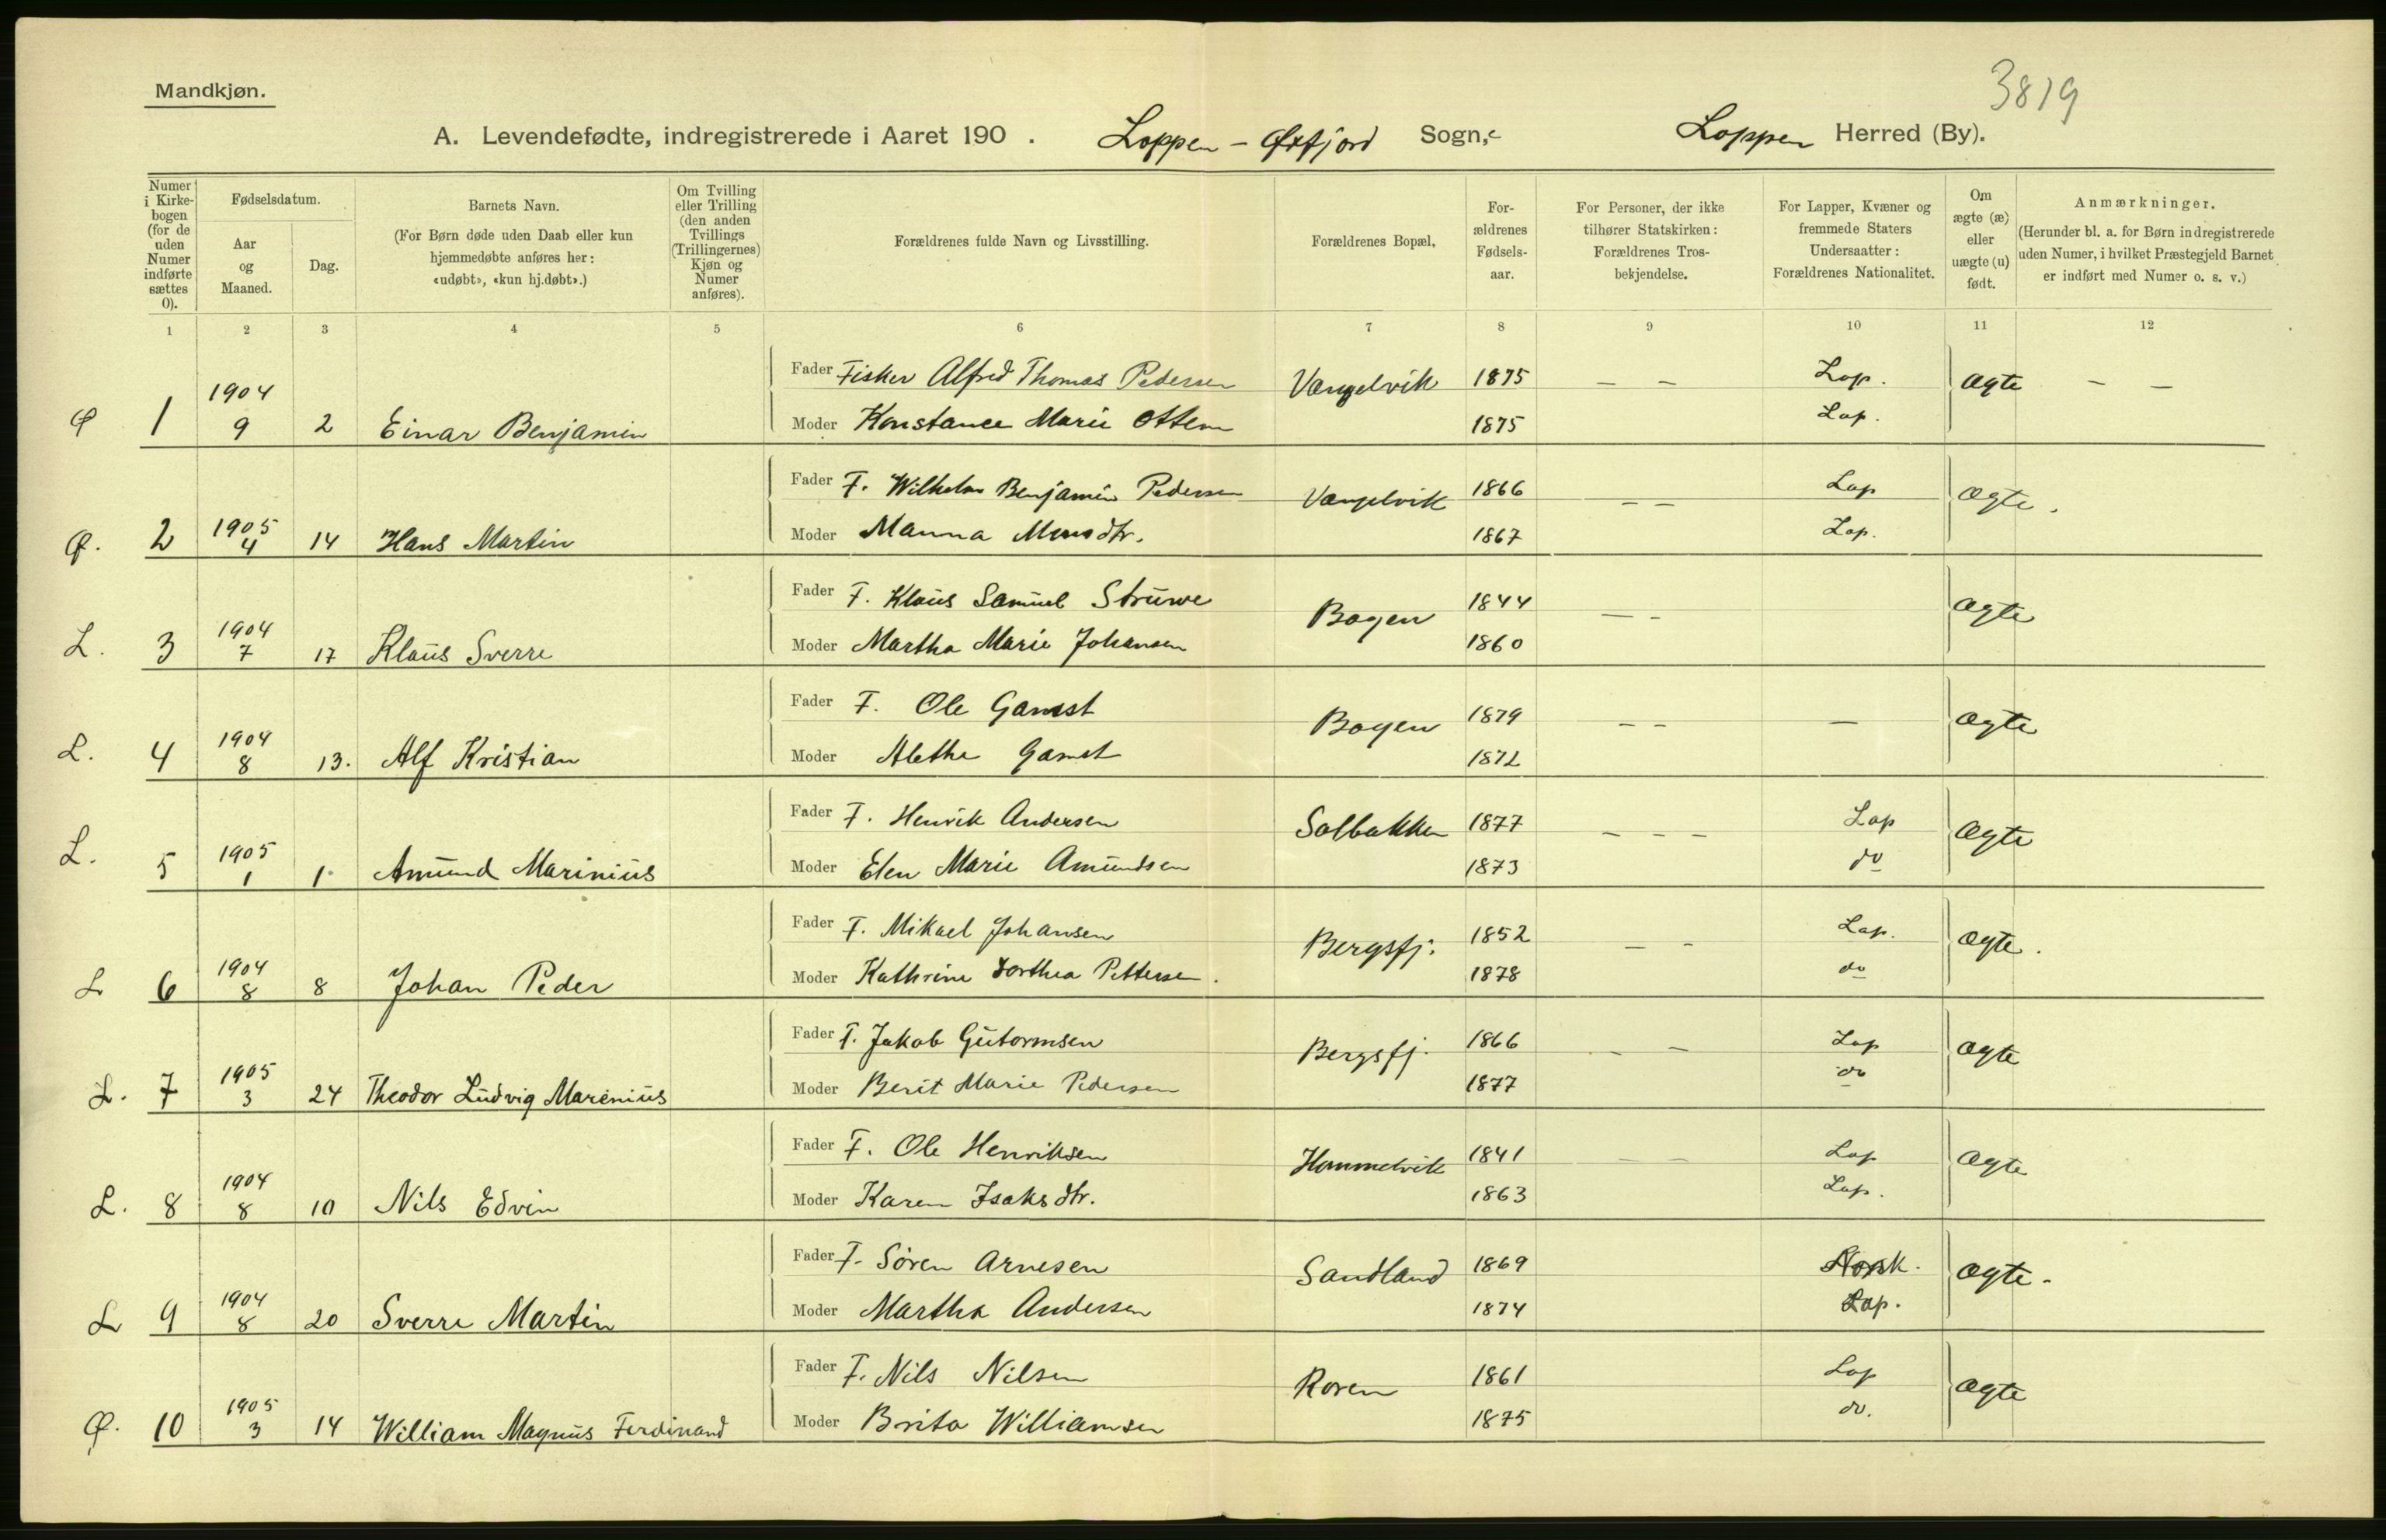 Mandkjøn.
3819
A. Levendefødte, indregistrerede i Aaret 190 . Loppen - Øxfjord Sogn, Loppen Herred (By).
Numer i Kirkebogen (for de uden Numer indførte sættes 0).
Fødselsdatum.
Aar og Maaned.
Dag.
Barnets Navn.
(For Børn døde uden Daab eller kun hjemmedøbte anføres her: «udøbt», «kun hj.døbt».)
Om Tvilling eller Trilling (den anden Tvillings (Trillingernes) Kjøn og Numer anføres).
Forældrenes fulde Navn og Livsstilling.
Forældrenes Bopæl,
Forældrenes Fødselsaar.
For Personer, der ikke tilhører Statskirken: Forældrenes Trosbekjendelse.
For Lapper, Kvæner og fremmede Staters Undersaatter: Forældrenes Nationalitet.
Om ægte (æ) eller uægte (u) født.
Anmærkninger.
(Herunder bl. a. for Børn indregistrerede uden Numer, i hvilket Præstegjeld Barnet er indført med Numer o. s. v.)
1 2 3 4 5 6 7 8 9 10 11 12
Fader Fisker Alfred Thomas Pedersen Vangelvik 1875 — — Lap. Ægte — —
Ø 1 1904 9 2 Einar Benjamin Moder Konstance Marie Ottem 1875 Lap.
Fader F. Wilhelm Benjamin Pedersen Vangelvik 1866 — — Lap Ægte.
Ø. 2 1905 4 14 Hans Martin Moder Manna Monsdtr. 1867 Lap.
Fader F. Klaus Samuel Struwe Bogen 1844 — - Ægte
L. 3 1904 7 17 Klaus Sverre Moder Martha Marie Johansen 1860
Fader F. Ole Gamst Bogen 1879 — — — Ægte
L. 4 1904 8 13. Alf Kristian Moder Alethe Gamst 1872
Fader F. Henrik Andersen Solbakken 1877 — — — Lap Ægte
L. 5 1905 1 1. Amund Marinius Moder Elen Marie Amundsen 1873 do
Fader F. Mikael Johansen Bergsfj. 1852 — - Lap. Ægte.
L 6 1904 8 8 Johan Peder Moder Kathrine Dorthea Pettersen. 1878 do
Fader F. Jakob Gutormsen Bergsfj. 1866 - — Lap Ægte
L. 7 1905 3 24 Theodor Ludvig Marinius Moder Berit Marie Pedersen 1877 do
Fader F. Ole Henriksen Hommelvik 1841 — — Lap Ægte
L. 8 1904 8 10 Nils Edvin Moder Karen Isaksdtr. 1863 Lap.
Fader F. Sören Arnesen Sandland 1869 Norsk. Ægte.
L 9 1904 8 20 Sverre Martin Moder Martha Andersen 1874 Lap.
Fader F. Nils Nilsen Roren 1861 Lap Ægte
Ø. 10 1905 3 14 William Magnus Ferdinand Moder Brita Williamsen 1875 do.